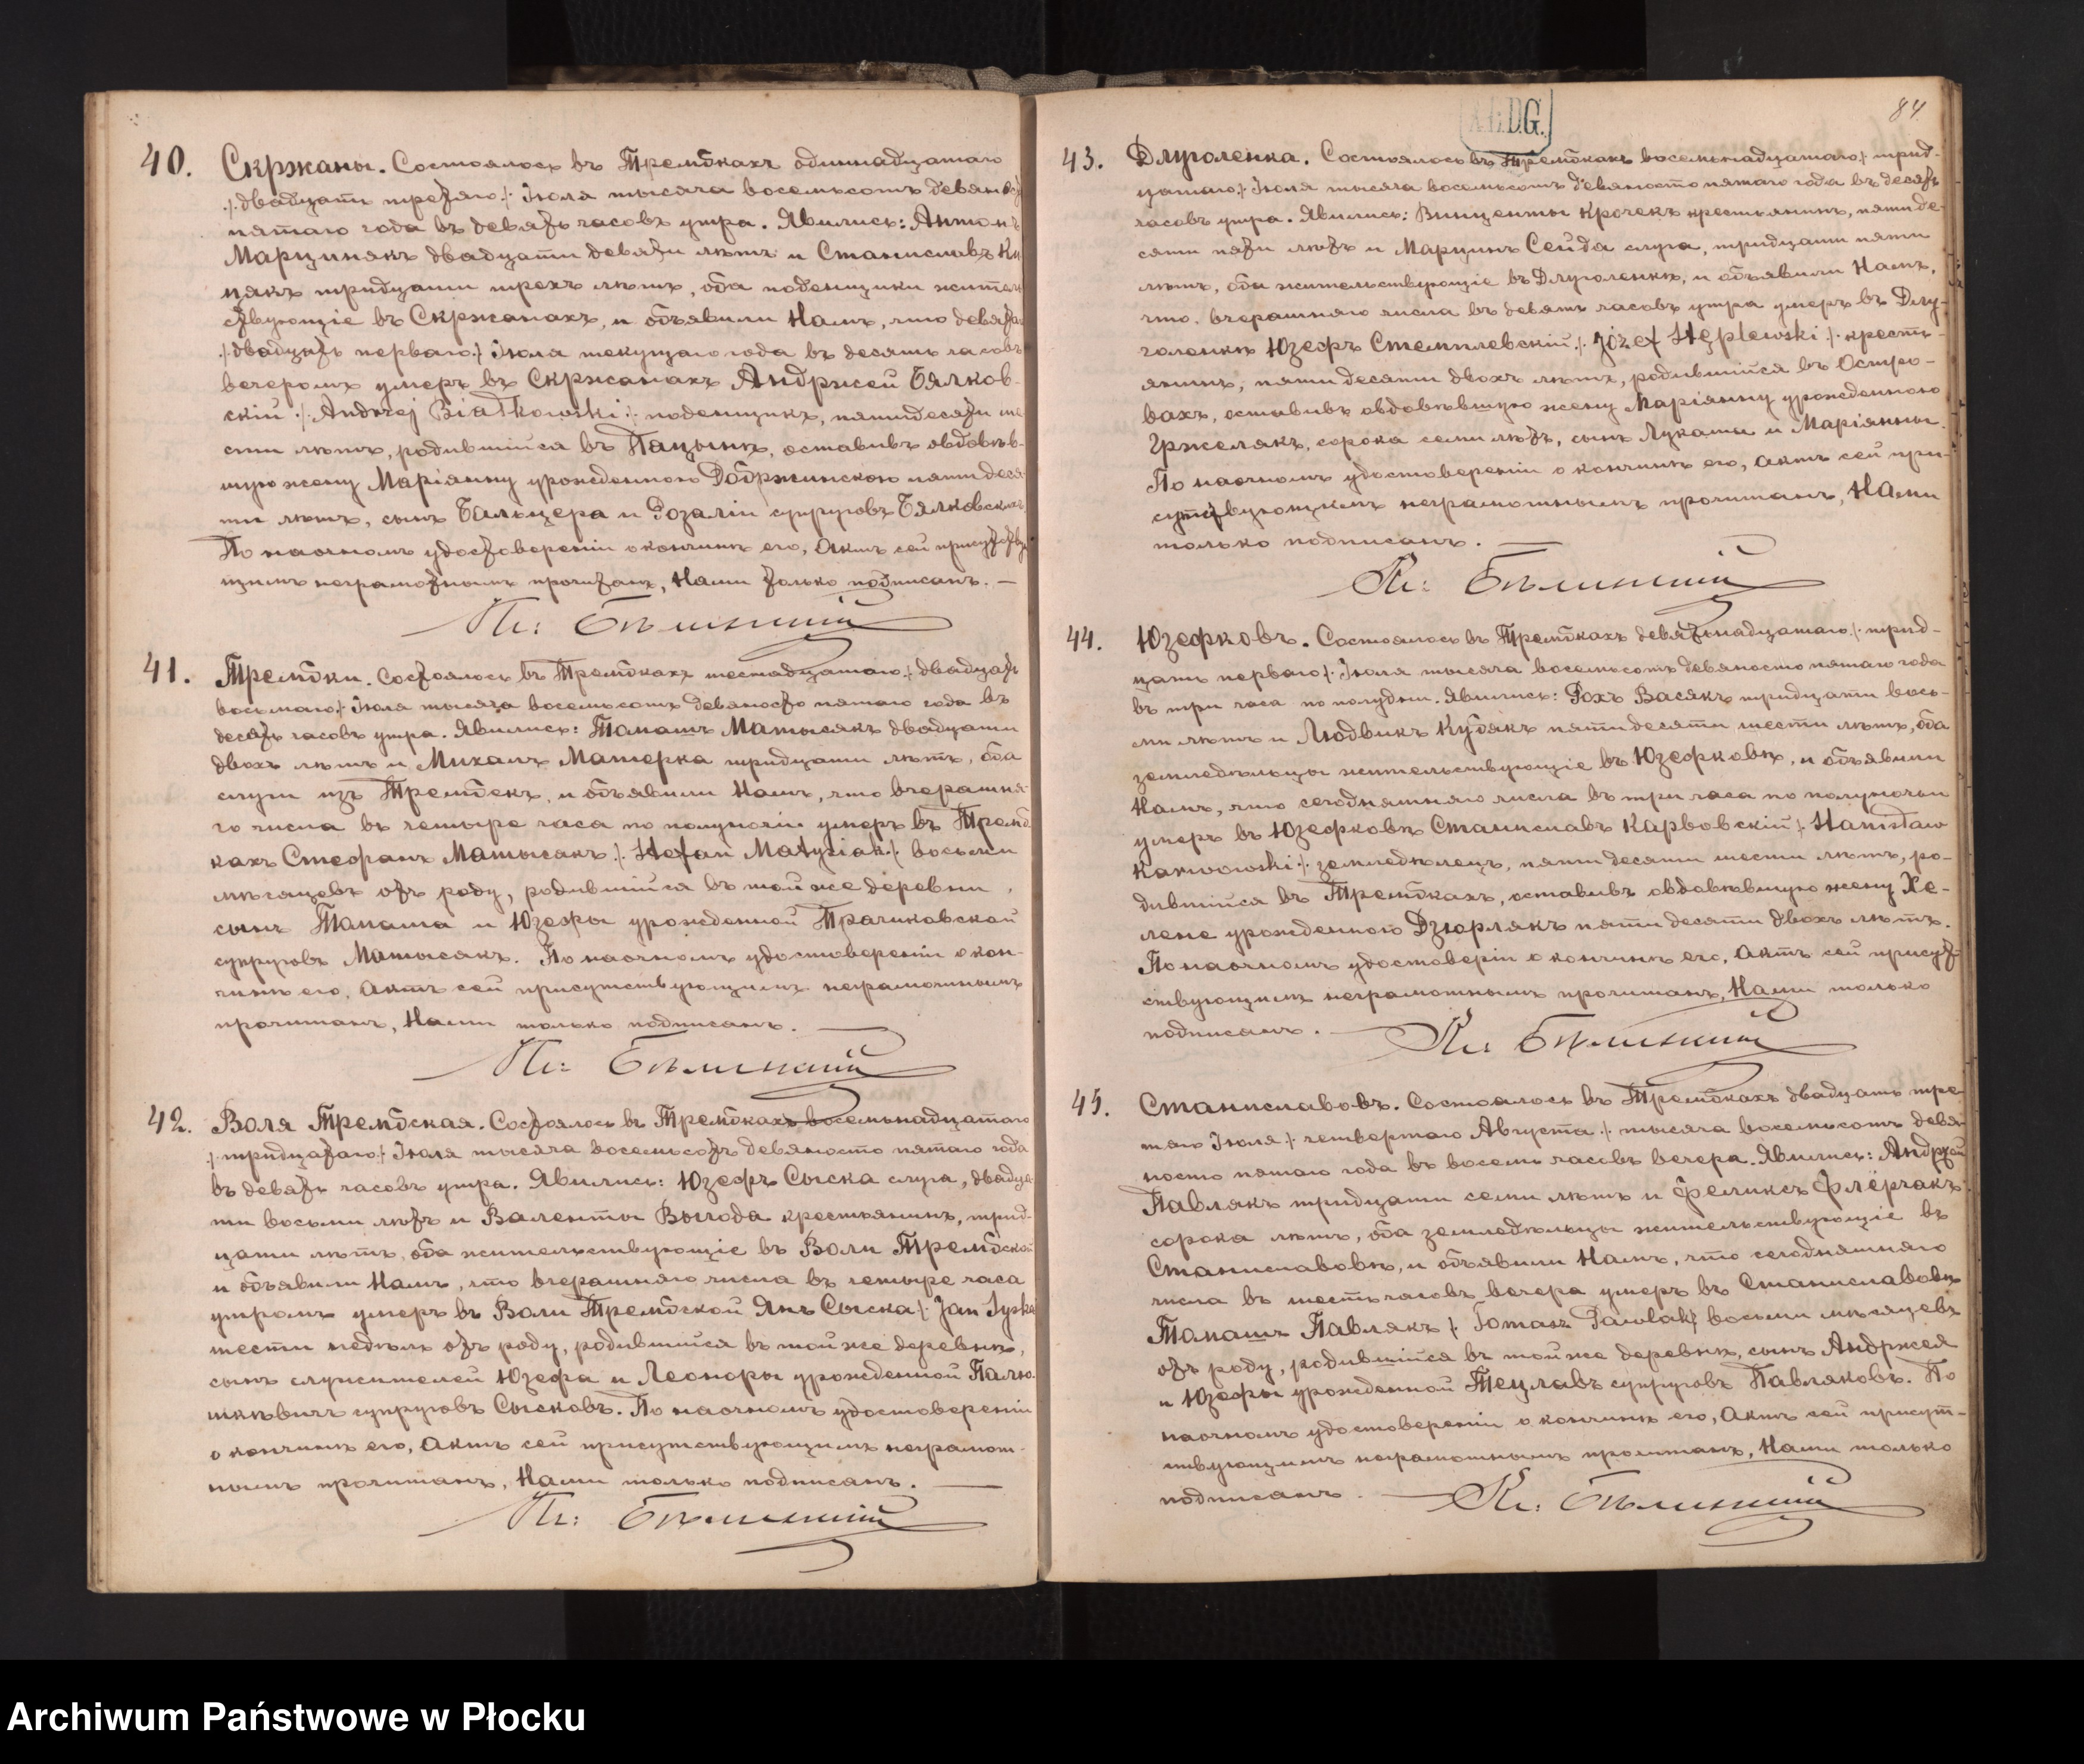 40. Скржаны. Состоялось въ Трембкахъ одиннадцатаго
/: двадцать третьяго :/ Іюля тысяча восемьсотъ девяносто
пятаго года въ девять часовъ утра. Явились: Антонъ
Марцинякъ двадцати девяти лѣтъ и Станиславъ
цякъ тридцати трехъ лѣтъ, оба поденщики житель
ствующіе въ Скржанахъ, и объявили Намъ, что девятаго
/: двадцать перваго :/ Іюля текущаго года въ десять часовъ
вечеромъ умеръ въ Скржанахъ Андржей Бялков-
скій /: Andrzej Białkowski :/ поденщикъ, пятидесяти ше
сти лѣтъ, родившійся въ Пацынѣ, оставивъ овдовѣв-
шую жену Маріянну урожденною Добржинскою пятидеся
ти лѣтъ, сынъ Бальцера и Розаліи супруговъ Бялковскихъ.
По наочномъ удостовереніи о кончинѣ его, Актъ сей присутствую
щимъ неграмотнымъ прочитанъ, Нами только подписанъ. —
Кс: Бѣлинскій
41. Трембки. Состоялось въ Трембкахъ шестнадцатаго /: двадцать
восьмаго :/ Іюля тысяча восемьсотъ девяносто пятаго года въ
десять часовъ утра. Явились: Томашъ Матысякъ двадцати
двохъ лѣтъ и Михалъ Матерка тридцати лѣтъ, оба
слуги изъ Трембекъ, и объявили Намъ, что вчерашня-
го числа въ четыре часа по полуночи умеръ въ Тремб
кахъ Стефанъ Матысякъ /: Stefan Matysiak :/ восьми
мѣсяцевъ отъ роду, родившійся въ той же деревни,
сынъ Томаша и Юзефы урожденной Трачиковской
супруговъ Матысякъ. По наочномъ удостовереніи о кон-
чинѣ его, Актъ сей присутствующимъ неграмотнымъ
прочитанъ, Нами только подписанъ. —
Кс: Бѣлинскій
42. Воля Трембская. Состоялось въ Трембкахъ восемьнадцатаго
/: тридцатаго :/ Іюля тысяча восемьсотъ девяносто пятаго года
въ девять часовъ утра. Явились: Юзефъ Сыска слуга, двадца
ти восьми лѣтъ и Валенты Выгода крестьянинъ, трид-
цати лѣтъ, оба жительствующіе въ Воли Трембской
и объявили Намъ, что вчерашняго числа въ четыре часа
утромъ умеръ въ Воли Трембской Янъ Сыска /: Jan Syska
шести недѣль отъ роду, родившійся въ той же деревнѣ,
сынъ служителей Юзефа и Леоноры урожденной Палю-
шкѣвичъ супруговъ Сысковъ. По наочномъ удостовереніи
о кончинѣ его, Актъ сей присутствующимъ неграмот-
нымъ прочитанъ, Нами только подписанъ. —
Кс: Бѣлинскій
D.G.
84
43. Длуголенка. Состоялось въ Трембкахъ восемьнадцатаго /: трид-
цатаго :/ Іюля тысяча восемьсотъ девяносто пятаго года въ десять
часовъ утра. Явились: Винценты Крочекъ крестьянинъ, пятиде-
сяти пяти лѣтъ и Марцинъ Сейда слуга, тридцати пяти
лѣтъ, оба жительствующіе въ Длуголенкѣ, и объявили Намъ,
что вчерашняго числа въ девять часовъ утра умеръ въ Длу-
голенкѣ Юзефъ Стемплевскій /: Józef Stęplewski :/ кресть-
янинъ, пятидесяти двохъ лѣтъ, родившійся въ Остро-
вахъ, оставивъ овдовѣвшую жену Маріянну урожденною
Гржелякъ, сорока семи лѣтъ, сынъ Лукаша и Маріянны.
По наочномъ удостовереніи о кончинѣ его, Актъ сей при-
сутствующимъ неграмотнымъ прочитанъ, Нами
только подписанъ. —
Кс: Бѣлинскій
44. Юзефковъ. Состоялось въ Трембкахъ девятьнадцатаго /: трид-
цать перваго :/ Іюля тысяча восемьсотъ девяносто пятаго года
въ три часа по полудни. Явились: Рохъ Васякъ тридцати вось-
ми лѣтъ и Людвикъ Кубякъ пятидесяти шести лѣтъ, оба
земледѣльцы жительствующіе въ Юзефковѣ, и объявили
Намъ, что сегодняшняго числа въ три часа по полуночи
умеръ въ Юзефковѣ Станиславъ Карвовскій /: Stanisław
Karwowski :/ земледѣлецъ, пятидесяти шести лѣтъ, ро-
дившійся въ Трембкахъ, оставивъ овдовѣвшую жену Хе-
лене урожденною Дзюрлякъ пятидесяти двохъ лѣтъ.
По наочномъ удостоверіи о кончинѣ его, Актъ сей присут-
ствующимъ неграмотнымъ прочитанъ, Нами только
подписанъ. —
Кс: Бѣлинскій
45. Станиславовъ. Состоялось въ Трембкахъ двадцать тре-
тяго Іюля /: четвертаго Августа :/ тысяча восемьсотъ девя-
носто пятаго года въ восемь часовъ вечера. Явились: Андржей
Павлякъ тридцати семи лѣтъ и Феликсъ Флёрчакъ
сорока лѣтъ, оба земледѣльцы жительствующіе въ
Станиславовѣ, и объявили Намъ, что сегодняшняго
числа въ шесть часовъ вечера умеръ въ Станиславовѣ
Томашъ Павлякъ /: Tomasz Pawlak :/ восьми мѣсяцевъ
отъ роду, родившійся въ той же деревнѣ, сынъ Андржея
и Юзефы урожденной Тецлавъ супруговъ Павляковъ. По
наочномъ удостовереніи о кончинѣ его, Актъ сей присут-
ствующимъ неграмотнымъ прочитанъ, Нами только
подписанъ. —
Кс: Бѣлинскій
Archiwum Państwowe w Płocku